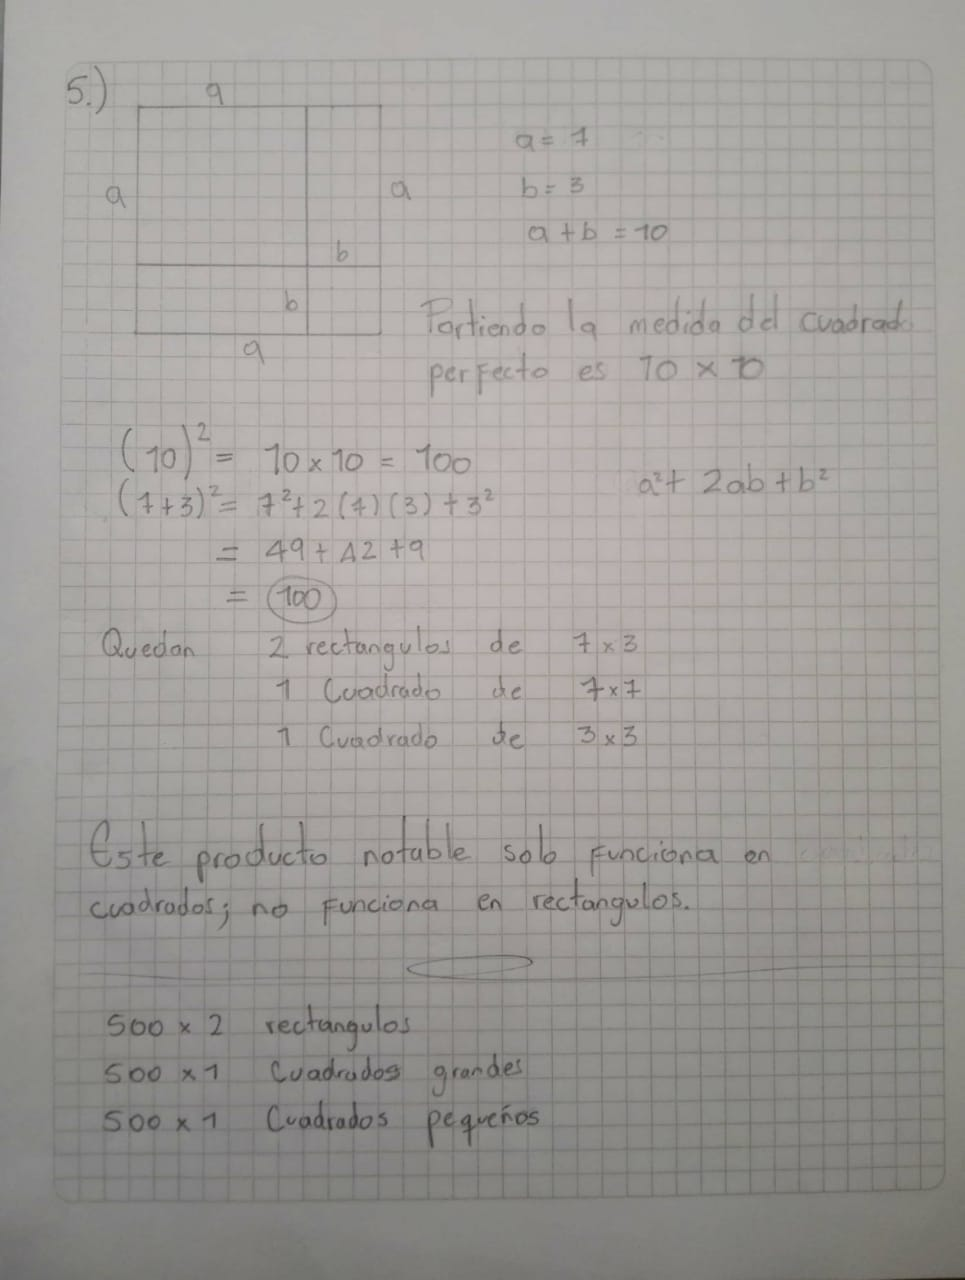 5.)
a
a
a
b
b
a
a = 7
b = 3
a + b = 10
Partiendo la medida del cuadrado
perfecto es 10 × 10
(10)² = 10 × 10 = 100
(7+3)² = 7² + 2 (7) (3) + 3²
a² + 2ab + b²
= 49 + 42 + 9
= 100
Quedan 2 rectangulos de 7 × 3
1 Cuadrado de 7 × 7
1 Cuadrado de 3 × 3
Este producto notable solo funciona en
cuadrados; no funciona en rectangulos.
500 × 2 rectangulos
500 × 1 Cuadrados grandes
500 × 1 Cuadrados pequeños